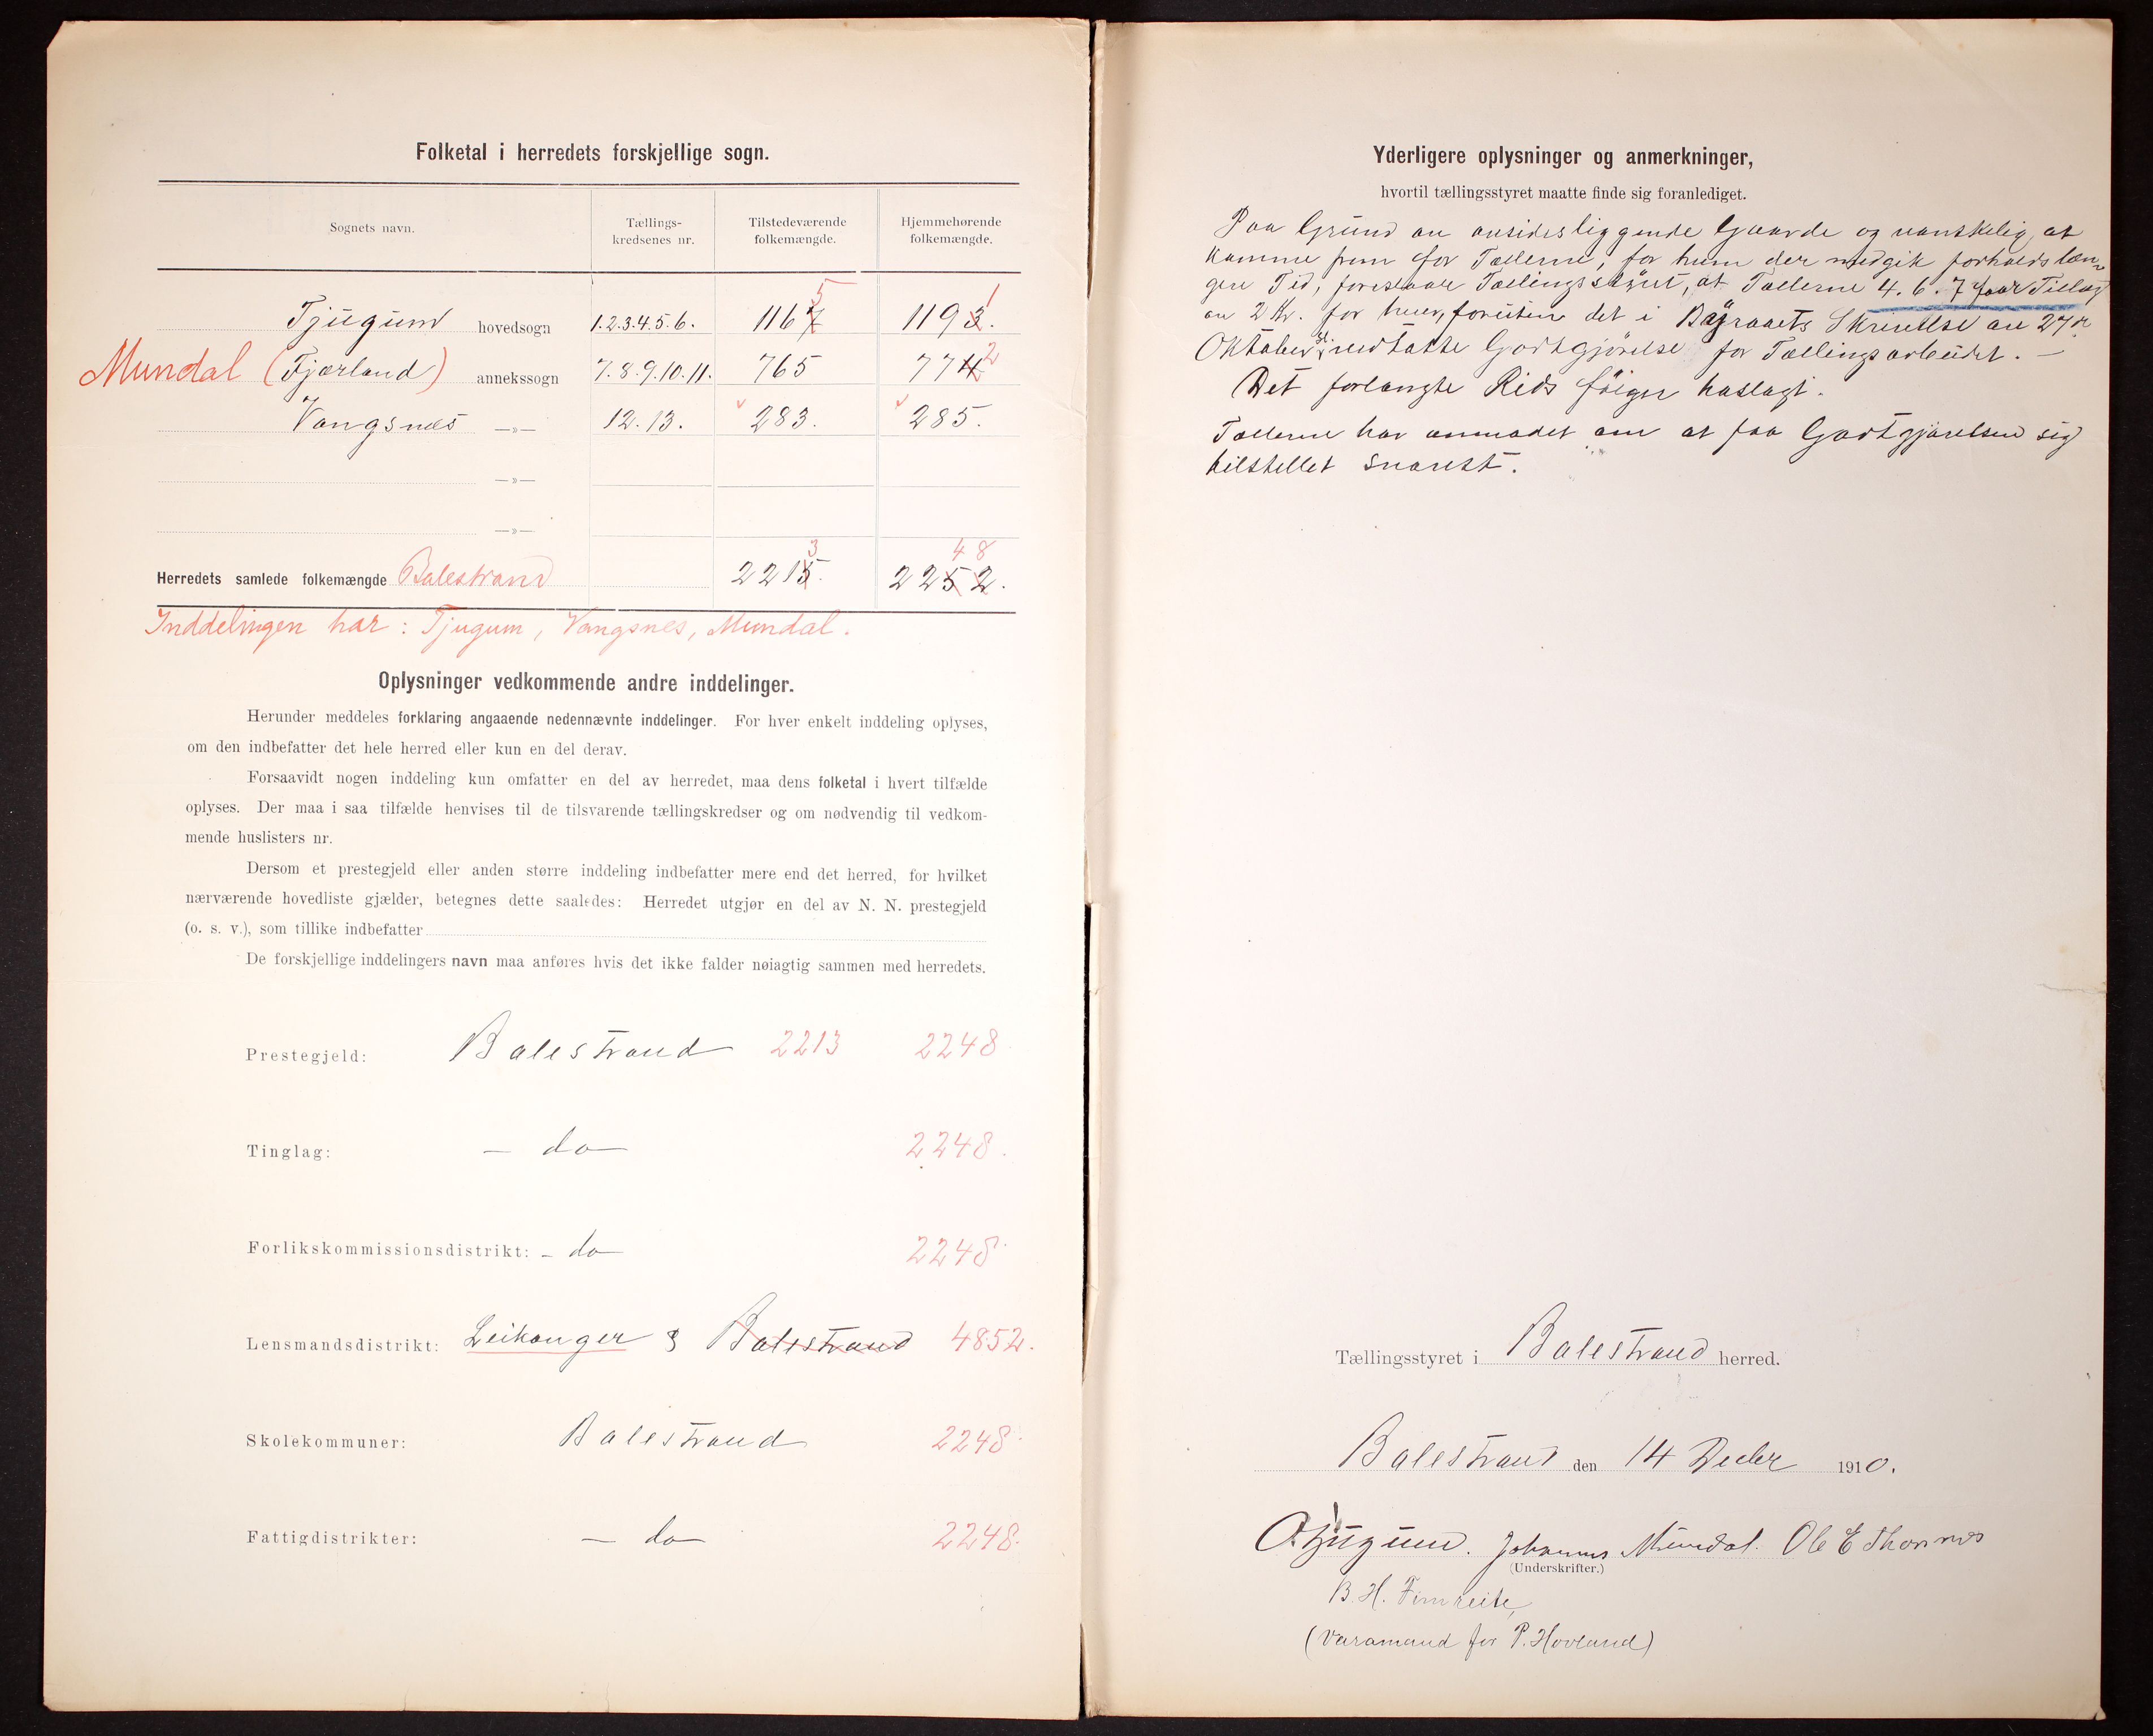 Folketal i herredets forskjellige sogn.
Sognets navn. Tællings-kredsenes nr. Tilstedeværende folkemængde. Hjemmehørende folkemængde.
Tjugum hovedsogn 1.2.3.4.5.6. 1167 5 1193. 1
Mundal (Fjærland) annekssogn 7.8.9.10.11. 765 774 2
Vangsnes —»— 12.13. 283. 285.
—»—
—»—
Herredets samlede folkemængde Balestrand 2215. 3 2252. 48
Inddelingen har: Tjugum, Vangsnes, Mundal.
Oplysninger vedkommende andre inddelinger.
Herunder meddeles forklaring angaaende nedennævnte inddelinger. For hver enkelt inddeling oplyses,
om den indbefatter det hele herred eller kun en del derav.
Forsaavidt nogen inddeling kun omfatter en del av herredet, maa dens folketal i hvert tilfælde
oplyses. Der maa i saa tilfælde henvises til de tilsvarende tællingskredser og om nødvendig til vedkom-
mende huslisters nr.
Dersom et prestegjeld eller anden større inddeling indbefatter mere end det herred, for hvilket
nærværende hovedliste gjælder, betegnes dette saaledes: Herredet utgjør en del av N. N. prestegjeld
(o. s. v.), som tillike indbefatter
De forskjellige inddelingers navn maa anføres hvis det ikke falder nøiagtig sammen med herredets.
Prestegjeld: Balestrand 2213 2248
Tinglag: — do — 2248.
Forlikskommissionsdistrikt: — do — 2248
Lensmandsdistrikt: Leikanger & Balestrand 4852.
Skolekommuner: Balestrand 2248
Fattigdistrikter: — do — 2248.
Yderligere oplysninger og anmerkninger,
hvortil tællingsstyret maatte finde sig foranlediget.
Paa Grund av avsidesliggende Gaarde og vanskelig at
komme frem for Tællerne, for hvem der medgik forholdslæn-
gere Tid, foreslaar Tællingsstyret, at Tællerne 4. 6. 7 faar Tillæg
av 2 Kr. for hver, foruten det i Byraaets Skrivelse av 27de
Oktober vedtatte Godtgjörelse for Tællingsarbeidet. —
Det forlangte Rids fölger vedlagt.
Tællerne har anmodet om at faa Godtgjörelsen sig
tilstellet snarest.
Tællingsstyret i Balestrand herred.
Balestrand den 14 Decbr 1910.
O. Tjugum. Johannes Mundal. Ole E Thorsnes
(Underskrifter.)
B. H. Fimreite,
(Varamand for P. Hovland)